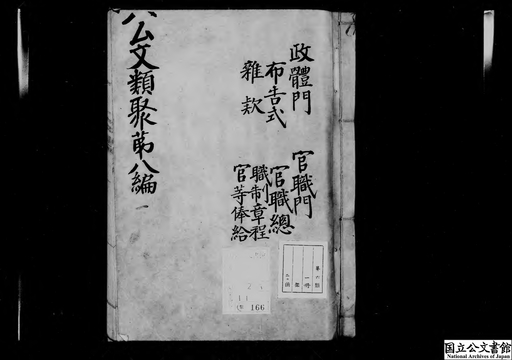 公文類聚第八編 一
政體門
布告式
雜款
官職門
官職總
職制章程
官等俸給
166
国立公文書館
National Archives of Japan